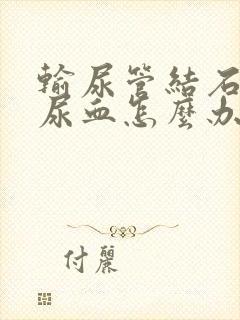 輸尿管結石
尿血怎麼办
付麗